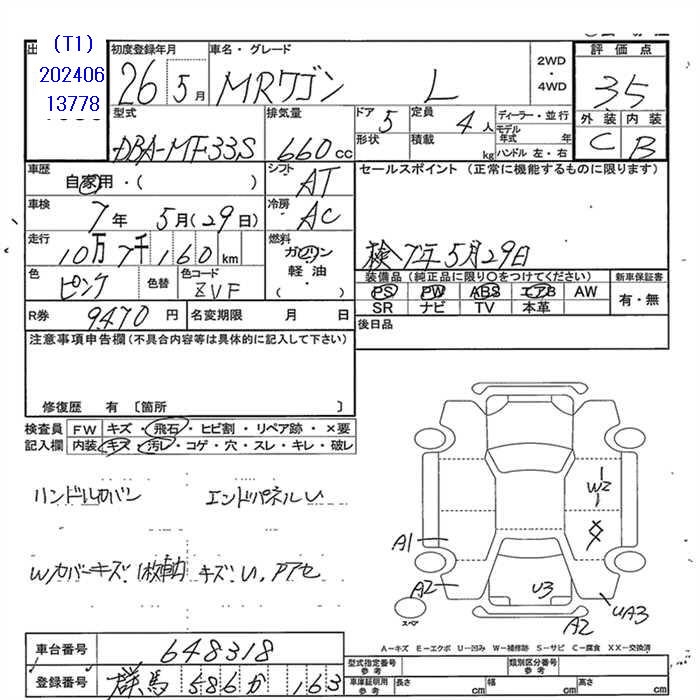 (T1)
202406
13778
初度登録年月
車名・グレード
26 5月
MRワゴン L
2WD
・
4WD
評価点
3.5
外装 内装
C B
型式
DBA-MF33S
排気量
660cc
ドア 5
形状
定員 4人
積載 kg
ディーラー・並行
モデル年式 年
ハンドル 左・右
車歴
自家用・( )
シフト AT
車検
7年 5月(29日)
冷房 AC
走行
10万7千160km
燃料
ガソリン
軽油・
( )
色
ピンク
色替
色コード
ZVF
R券 9470円
名変期限 月 日
セールスポイント (正常に機能するものに限ります)
検7年5月29日
装備品(純正品に限り○をつけてください)
新車保証書
PS PW ABS エアB AW
SR ナビ TV 本革
有・無
後日品
注意事項申告欄(不具合内容等は具体的に記入して下さい)
修復歴 有 〔箇所 〕
検査員 FW キズ・飛石・ヒビ割・リペア跡・×要
記入欄 内装 キズ・汚レ・コゲ・穴・スレ・キレ・破レ
ハンドルカバン
エンドパネルU
Wカバーキズ
キズ・U
W2
A1
A2
U3
UA3
A2
スペア
A-キズ E-エクボ U-凹み W-補修跡 S-サビ C-腐食 XX-交換済
車台番号 648318
登録番号 群馬 586か 163
型式指定番号
参考
類別区分番号
参考
車庫証明用
参考
長さ cm
幅 cm
高さ cm